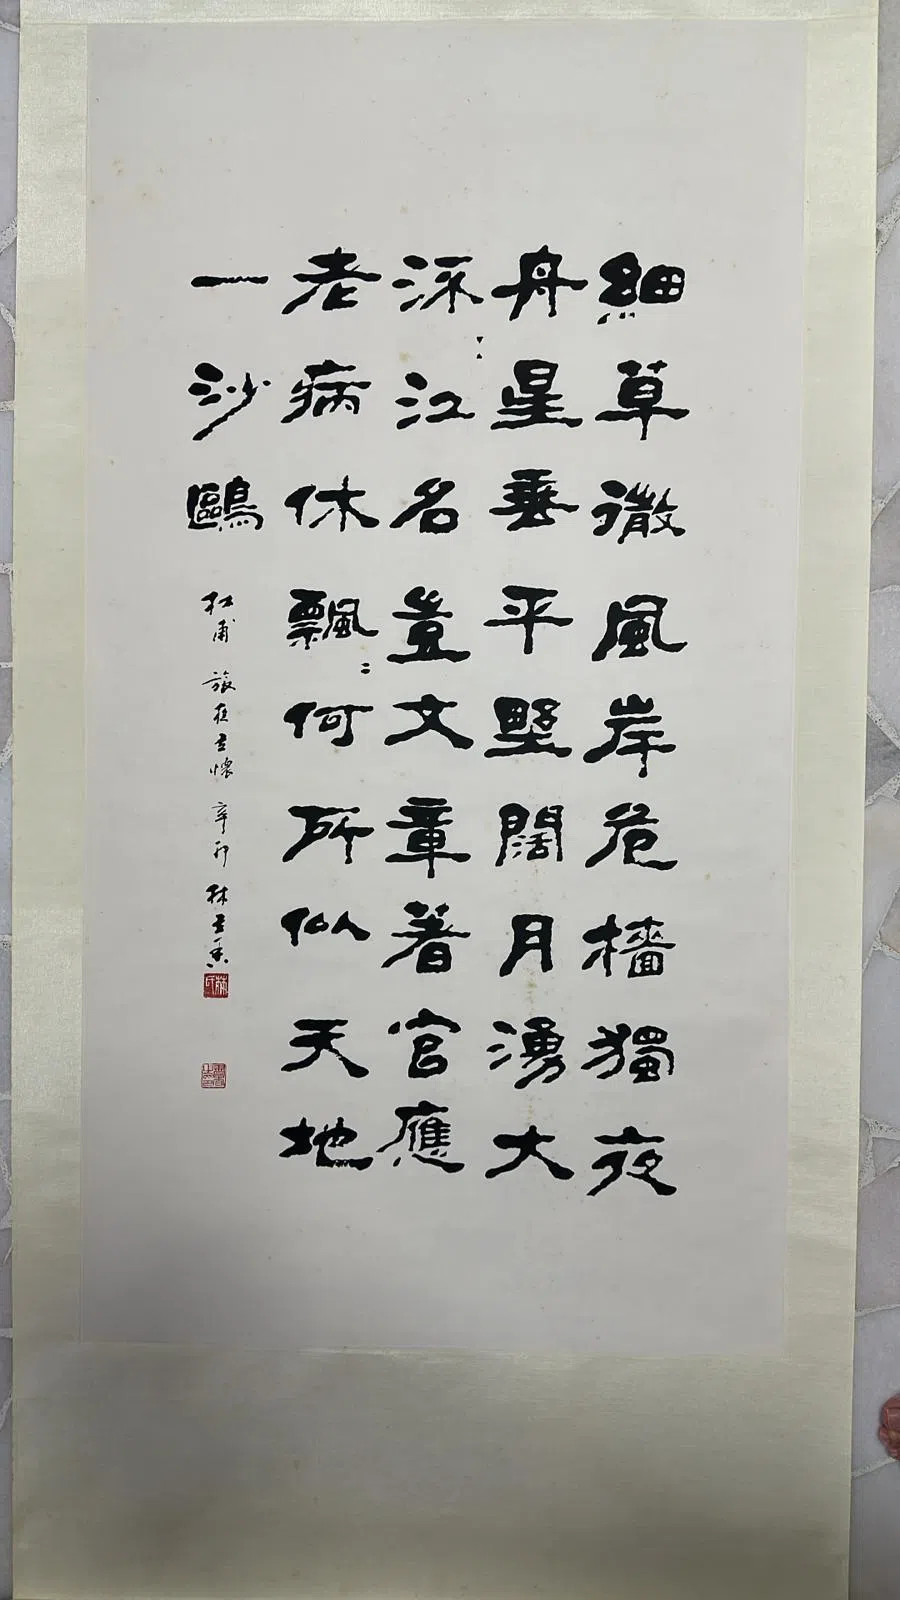 細草微風岸危檣獨夜
舟星垂平墅闊月湧大
流江名豈文章著官應
老病休飄〻何所似天地
一沙鷗
杜甫 旅夜書懷 辛卯